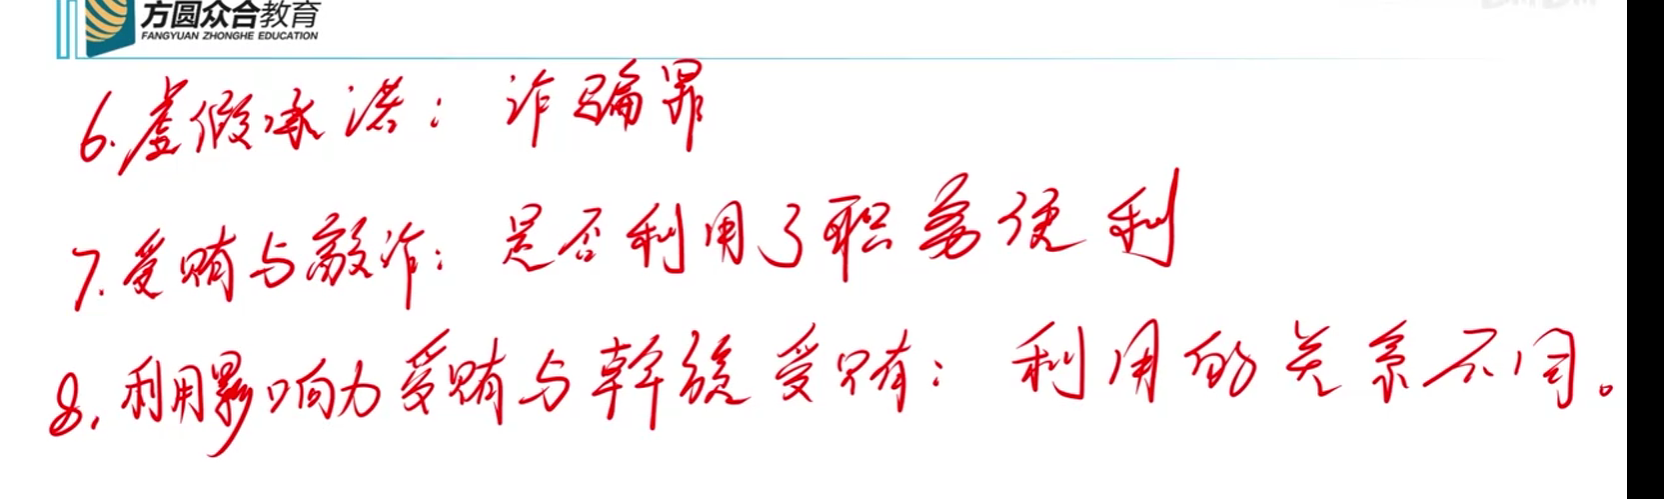 方圆众合教育
FANGYUAN ZHONGHE EDUCATION
6.虚假承诺：诈骗罪
7.受贿与敲诈：是否利用了职务便利
8.利用影响力受贿与斡旋受贿：利用的关系不同。